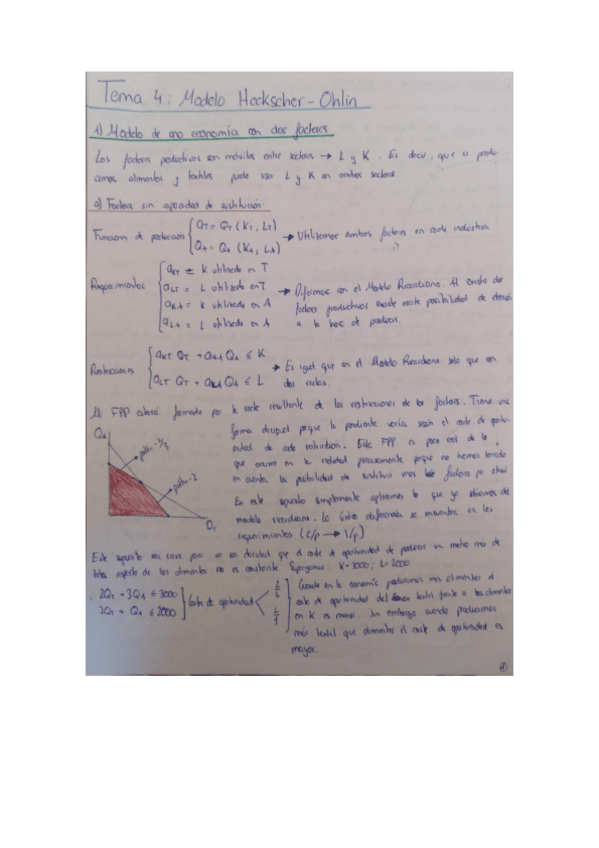 Tema 4: Modelo Heckscher-Ohlin
1) Modelo de una economía con dos factores
Los factores productivos son móviles entre sectores → L y K. Es decir, que si produ
cimos alimentos y textiles puedo usar L y K en ambos sectores
a) Factores sin capacidad de sustitución:
Funciones de producción { QT = QT (KT, LT)
QA = QA (KA, LA) → Utilizamos ambos factores en cada industria
Requerimientos { aKT = K utilizado en T
aLT = L utilizado en T
aKA = K utilizado en A
aLA = L utilizado en A
→ Diferencia con el Modelo Ricardiano. Al
factores productivos existe esta posibilidad de
a la hora de producir.
Restricciones { aKT QT + aKA QA ≤ K
aLT QT + aLA QA ≤ L
→ Es igual que en el Modelo Ricardiano solo que con
dos
La FPP estará formada por la resultante de las restricciones de los factores. Tiene una
forma porque la pendiente varía según el coste de oportu
nidad de cada restricción. Esta FPP es poco real de lo
que ocurre en la realidad precisamente porque no hemos tenido
en cuenta la posibilidad de sustituir unos factores por otros
En este supuesto simplemente aplicamos lo que ya sabíamos del
modelo ricardiano. La única diferencia se encuentra en los
requerimientos (c/p → 1/p)
QA
pdte = -2/3
pdte = -2
QT
Este supuesto nos sirve para ver en realidad que el coste de oportunidad de producir un metro más de
tela respecto de los alimentos no es constante. Supongamos: K = 3000; L = 2000
2QT + 3QA ≤ 3000
2QT + QA ≤ 2000
} Costes de oportunidad
Cuando en la economía producimos más alimentos el
coste de oportunidad del textil frente a los alimentos
en K es menor. Sin embargo cuando producimos
más textil que alimentos el coste de oportunidad es
mayor.